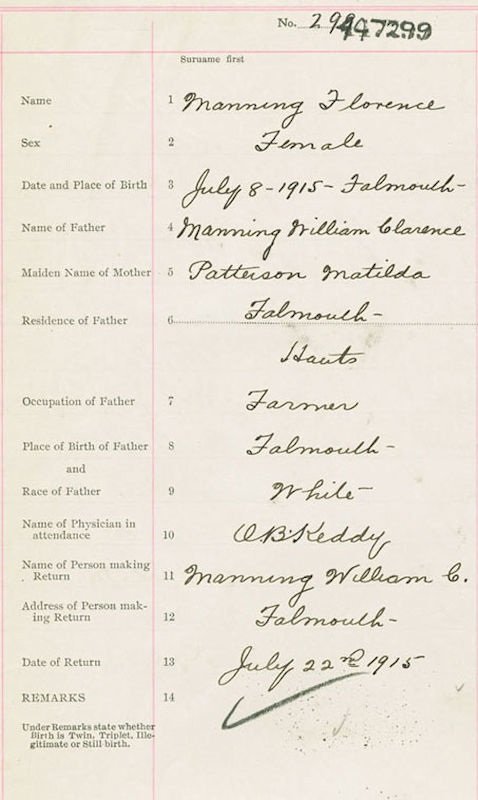 No. 299
447299
Surname first
Name 1 Manning Florence
Sex 2 Female
Date and Place of Birth 3 July 8-1915- Falmouth-
Name of Father 4 Manning William Clarence
Maiden Name of Mother 5 Patterson Matilda
Residence of Father 6 Falmouth-
Hants
Occupation of Father 7 Farmer
Place of Birth of Father 8 Falmouth-
and
Race of Father 9 White-
Name of Physician in
attendance 10 O.B. Keddy
Name of Person making
Return 11 Manning William C.
Address of Person mak-
ing Return 12 Falmouth-
Date of Return 13 July 22nd 1915
REMARKS 14
Under Remarks state whether
Birth is Twin, Triplet, Ille-
gitimate or Still birth.